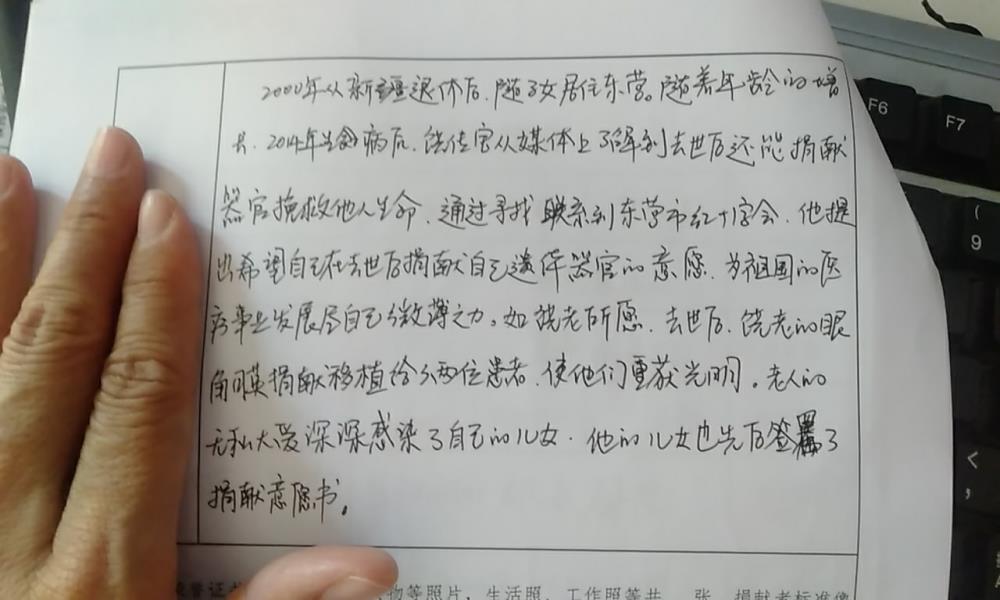 2000年从新疆退休后.随子女居住东营。随着年龄的增
长.2014年生病后.饶传官从媒体上了解到去世后还能捐献
器官挽救他人生命.通过寻找联系到东营市红十字会.他提
出希望自己在去世后捐献自己遗体器官的意愿.为祖国的医
疗事业发展尽自己微薄之力。如饶老所愿.去世后.饶老的眼
角膜捐献移植给了两位患者.使他们重获光明。老人的
无私大爱深深感染了自己的儿女.他的儿女也先后签署了
捐献意愿书。
荣誉证 物等照片，生活照、工作照等共 张，捐献者标准像
F6
F7
(
9
<
,